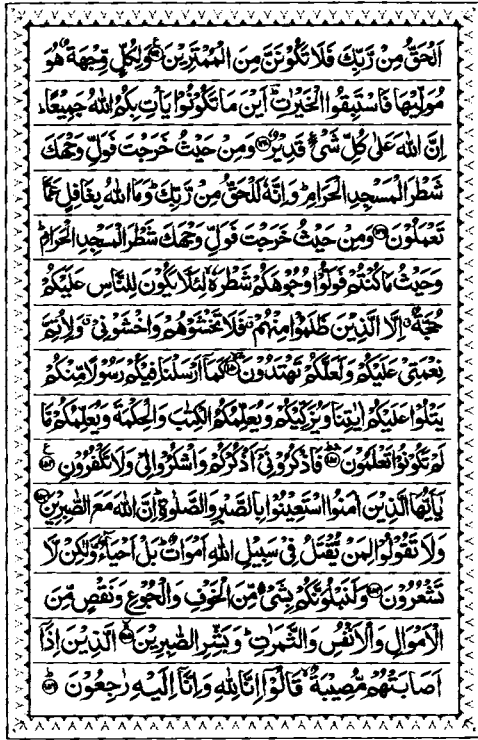 اَلْحَقُّ مِنْ رَّبِّكَ فَلَا تَكُوْنَنَّ مِنَ الْمُمْتَرِيْنَ ﴿١٤٧﴾ وَلِكُلٍّ وِّجْهَةٌ هُوَ
مُوَلِّيْهَا فَاسْتَبِقُوا الْخَيْرٰتِ ؕ اَيْنَ مَا تَكُوْنُوْا يَاْتِ بِكُمُ اللّٰهُ جَمِيْعًا ؕ
اِنَّ اللّٰهَ عَلٰى كُلِّ شَىْءٍ قَدِيْرٌ ﴿١٤٨﴾ وَمِنْ حَيْثُ خَرَجْتَ فَوَلِّ وَجْهَكَ
شَطْرَ الْمَسْجِدِ الْحَرَامِ ؕ وَاِنَّهٗ لَلْحَقُّ مِنْ رَّبِّكَ ؕ وَمَا اللّٰهُ بِغَافِلٍ عَمَّا
تَعْمَلُوْنَ ﴿١٤٩﴾ وَمِنْ حَيْثُ خَرَجْتَ فَوَلِّ وَجْهَكَ شَطْرَ الْمَسْجِدِ الْحَرَامِ ؕ
وَحَيْثُ مَا كُنْتُمْ فَوَلُّوْا وُجُوْهَكُمْ شَطْرَهٗ ۙ لِئَلَّا يَكُوْنَ لِلنَّاسِ عَلَيْكُمْ
حُجَّةٌ ۙ اِلَّا الَّذِيْنَ ظَلَمُوْا مِنْهُمْ ۗ فَلَا تَخْشَوْهُمْ وَاخْشَوْنِىْ ۗ وَلِاُتِمَّ
نِعْمَتِىْ عَلَيْكُمْ وَلَعَلَّكُمْ تَهْتَدُوْنَ ﴿١٥٠﴾ كَمَاۤ اَرْسَلْنَا فِيْكُمْ رَسُوْلًا مِّنْكُمْ
يَتْلُوْا عَلَيْكُمْ اٰيٰتِنَا وَيُزَكِّيْكُمْ وَيُعَلِّمُكُمُ الْكِتٰبَ وَالْحِكْمَةَ وَيُعَلِّمُكُمْ مَّا
لَمْ تَكُوْنُوْا تَعْلَمُوْنَ ﴿١٥١﴾ فَاذْكُرُوْنِىْۤ اَذْكُرْكُمْ وَاشْكُرُوْا لِىْ وَلَا تَكْفُرُوْنِ ﴿١٥٢﴾ ع
يٰۤاَيُّهَا الَّذِيْنَ اٰمَنُوا اسْتَعِيْنُوْا بِالصَّبْرِ وَالصَّلٰوةِ ؕ اِنَّ اللّٰهَ مَعَ الصّٰبِرِيْنَ ﴿١٥٣﴾
وَلَا تَقُوْلُوْا لِمَنْ يُّقْتَلُ فِىْ سَبِيْلِ اللّٰهِ اَمْوَاتٌ ؕ بَلْ اَحْيَآءٌ وَّلٰكِنْ لَّا
تَشْعُرُوْنَ ﴿١٥٤﴾ وَلَنَبْلُوَنَّكُمْ بِشَىْءٍ مِّنَ الْخَوْفِ وَالْجُوْعِ وَنَقْصٍ مِّنَ
الْاَمْوَالِ وَالْاَنْفُسِ وَالثَّمَرٰتِ ؕ وَبَشِّرِ الصّٰبِرِيْنَ ﴿١٥٥﴾ الَّذِيْنَ اِذَاۤ
اَصَابَتْهُمْ مُّصِيْبَةٌ ۙ قَالُوْۤا اِنَّا لِلّٰهِ وَاِنَّاۤ اِلَيْهِ رٰجِعُوْنَ ﴿١٥٦﴾ ؕ